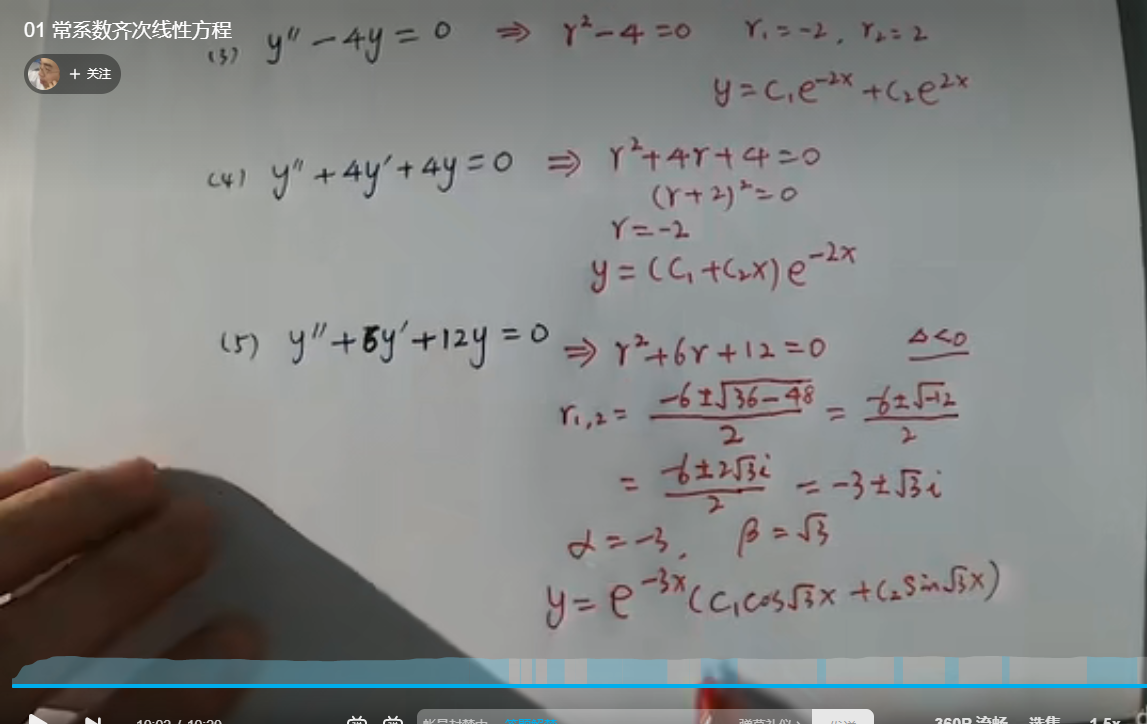 01 常系数齐次线性方程
(3) y″ − 4y = 0 ⇒ r² − 4 = 0 r₁ = −2, r₂ = 2
+ 关注
y = C₁e⁻²ˣ + C₂e²ˣ
(4) y″ + 4y′ + 4y = 0 ⇒ r² + 4r + 4 = 0
(r + 2)² = 0
r = −2
y = (C₁ + C₂x) e⁻²ˣ
(5) y″ + 6y′ + 12y = 0 ⇒ r² + 6r + 12 = 0 Δ < 0
r₁,₂ = (−6 ± √(36 − 48))/2 = (−6 ± √−12)/2
= (−6 ± 2√3 i)/2 = −3 ± √3 i
α = −3, β = √3
y = e⁻³ˣ (C₁cos√3x + C₂sin√3x)
360P 流畅 选集 1.5x